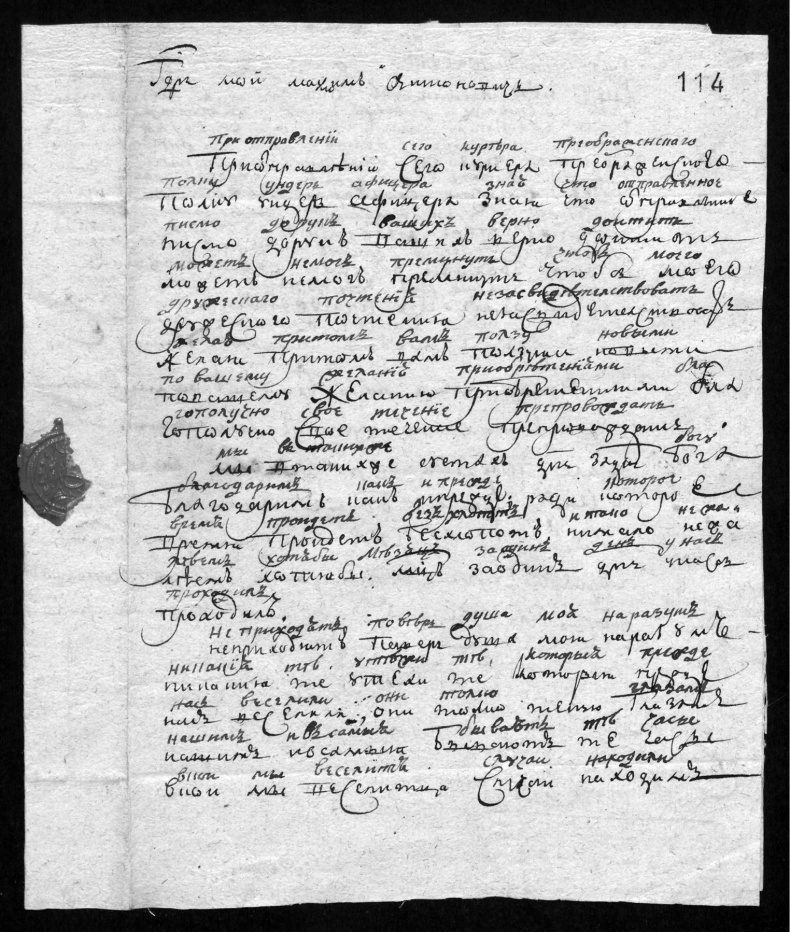 Гдрь мой маѯимъ Ѳитоновичъ.
114
При отправленїи сего курьера преображенскаго
При отправленїи сего курьера преображенскаго
полку ундеръ афицера зная что отправленное
полку ундеръ афицера зная что отправленное
писмо до рукъ вашихъ верно дойтить
писмо до рукъ вашихъ верно дойтить
можетъ немогъ преминуть чтобъ моего
можетъ немогъ преминуть чтобъ моего
дружескаго почтенїя незасвидѣтелствовать
дружескаго почтения незасвидетелствовать
желая притомъ вамъ ползуя новыми
желаю притомъ вамъ ползуя новыми
по вашему желанїю приобрѣтенїями бла
повашему желанию приобретениями бла
гополучно свое теченїе препровождать
гополучно свое течение препровождать
мы въ богу
мы суетахъ дни зади бога
благодаримъ нашъ и прежде которое
благодаримъ нашъ ради которое
время пройдетъ безъ хлопотъ и тако нечю-
время пройдетъ безхлопотъ нимало неча
ствуемъ хотябы мѣсяцъ заодинъ день унасъ
хотябы мцъ заодинъ днь унасъ
проходилъ.
проходилъ.
не приходятъ поверь душа моя наразумъ
неприходитъ поверь душа моя наразумъ
никакїя тѣ. утѣхи тѣ, которыя прежде
никакия те утехи те которыя прежде
насъ веселили они толко глазамъ
насъ веселили, они толко тению глазамъ
нашимъ и въ самыя бываютъ тѣ часы
нашимъ ивсамыя бываютъ те часы
вкои мы веселитца случаи находили
вкои мы веселитца случаи находимъ